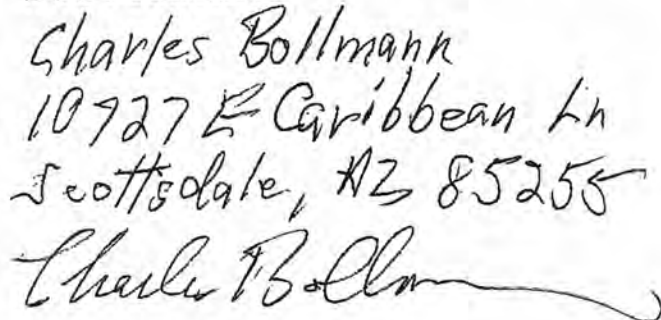 Charles Bollmann
10927 E Caribbean Ln
Scottsdale, AZ 85255
Charles Bollmann